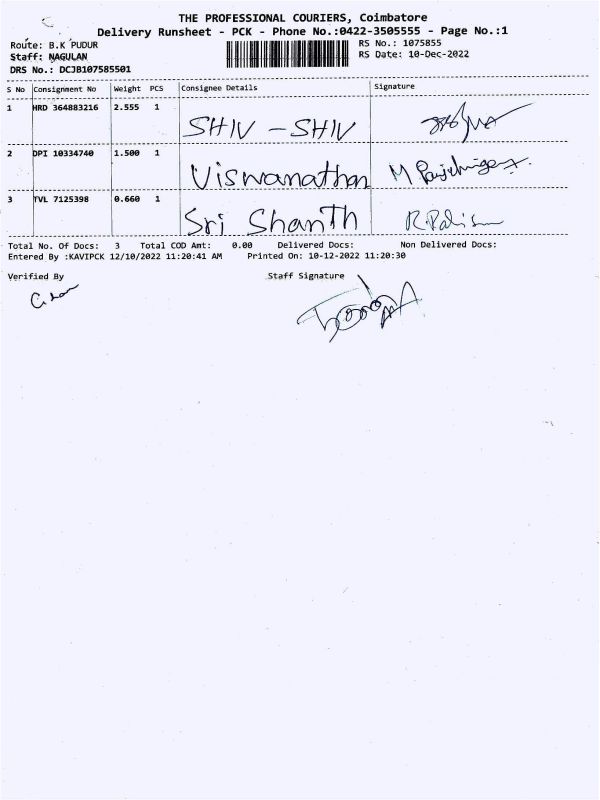 THE PROFESSIONAL COURIERS, Coimbatore
Delivery Runsheet - PCK - Phone No.:0422-3505555 - Page No.:1
Route: B.K PUDUR RS No.: 1075855
Staff: NAGULAN RS Date: 10-Dec-2022
DRS No.: DCJB107585501
S No Consignment No Weight PCS Consignee Details Signature
1 HRD 364883216 2.555 1
SHIV - SHIV
2 DPI 10334740 1.500 1
Viswanathan M
3 TVL 7125398 0.660 1
Sri Shanth R.
Total No. Of Docs: 3 Total COD Amt: 0.00 Delivered Docs: Non Delivered Docs:
Entered By :KAVIPCK 12/10/2022 11:20:41 AM Printed On: 10-12-2022 11:20:30
Verified By Staff Signature